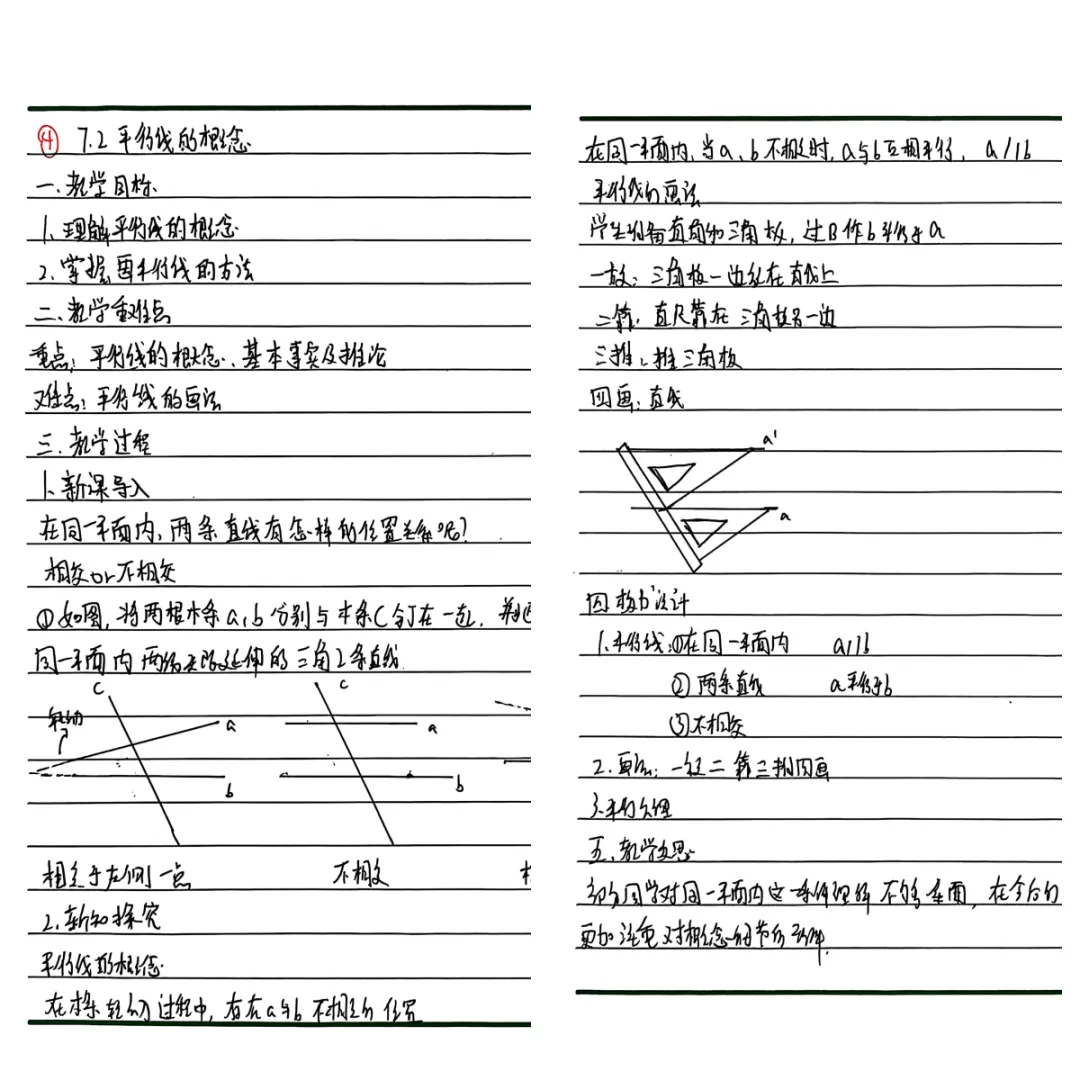 ④ 7.2 平行线的概念
一、教学目标
1、理解平行线的概念
2、掌握画平行线的方法
二、教学重难点
重点：平行线的概念、基本事实及推论
难点：平行线的画法
三、教学过程
1、新课导入
在同一平面内，两条直线有怎样的位置关系呢？
相交or不相交
①如图，将两根木条a,b分别与木条C钉在一起，
同一平面内两端无限延伸的三角2条直线
C
C
转动
a
a
b
b
相交于左侧一点
不相交
2、新知探究
平行线的概念
在木条转动过程中，存在a与b不相交的位置
在同一平面内，当a、b不相交时，a与b互相平行，a//b
平行线的画法
学生准备直角和三角板，过B作b平行于a
一放：三角板一边放在直线上
二靠：直尺靠在三角板另一边
三推：推三角板
四画：直线
a'
a
四 板书设计
1、平行线：①在同一平面内 a//b
②两条直线 a平行于b
③不相交
2、画法：一放二靠三推四画
3、平行公理
五、教学反思
部分同学对同一平面内这一条件理解不够全面，在今后的
更加注重对概念细节的